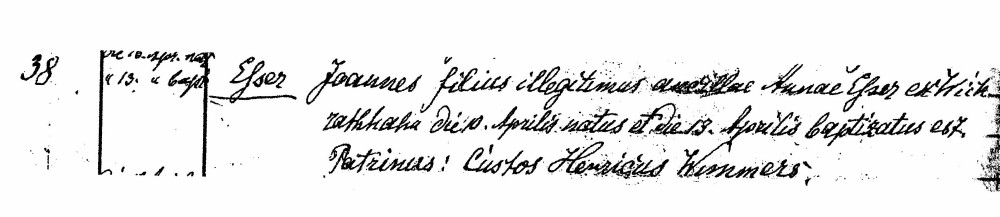 38 die 10. Apr. nat. Esser Joannes filius illegitimus ancillae Annae Esser ex Wick-
" 13. " bapt.
rathhahn die 10. Aprilis natus et die 13. Aprilis baptizatus est.
Patrinus: Custos Henricus Wimmers.